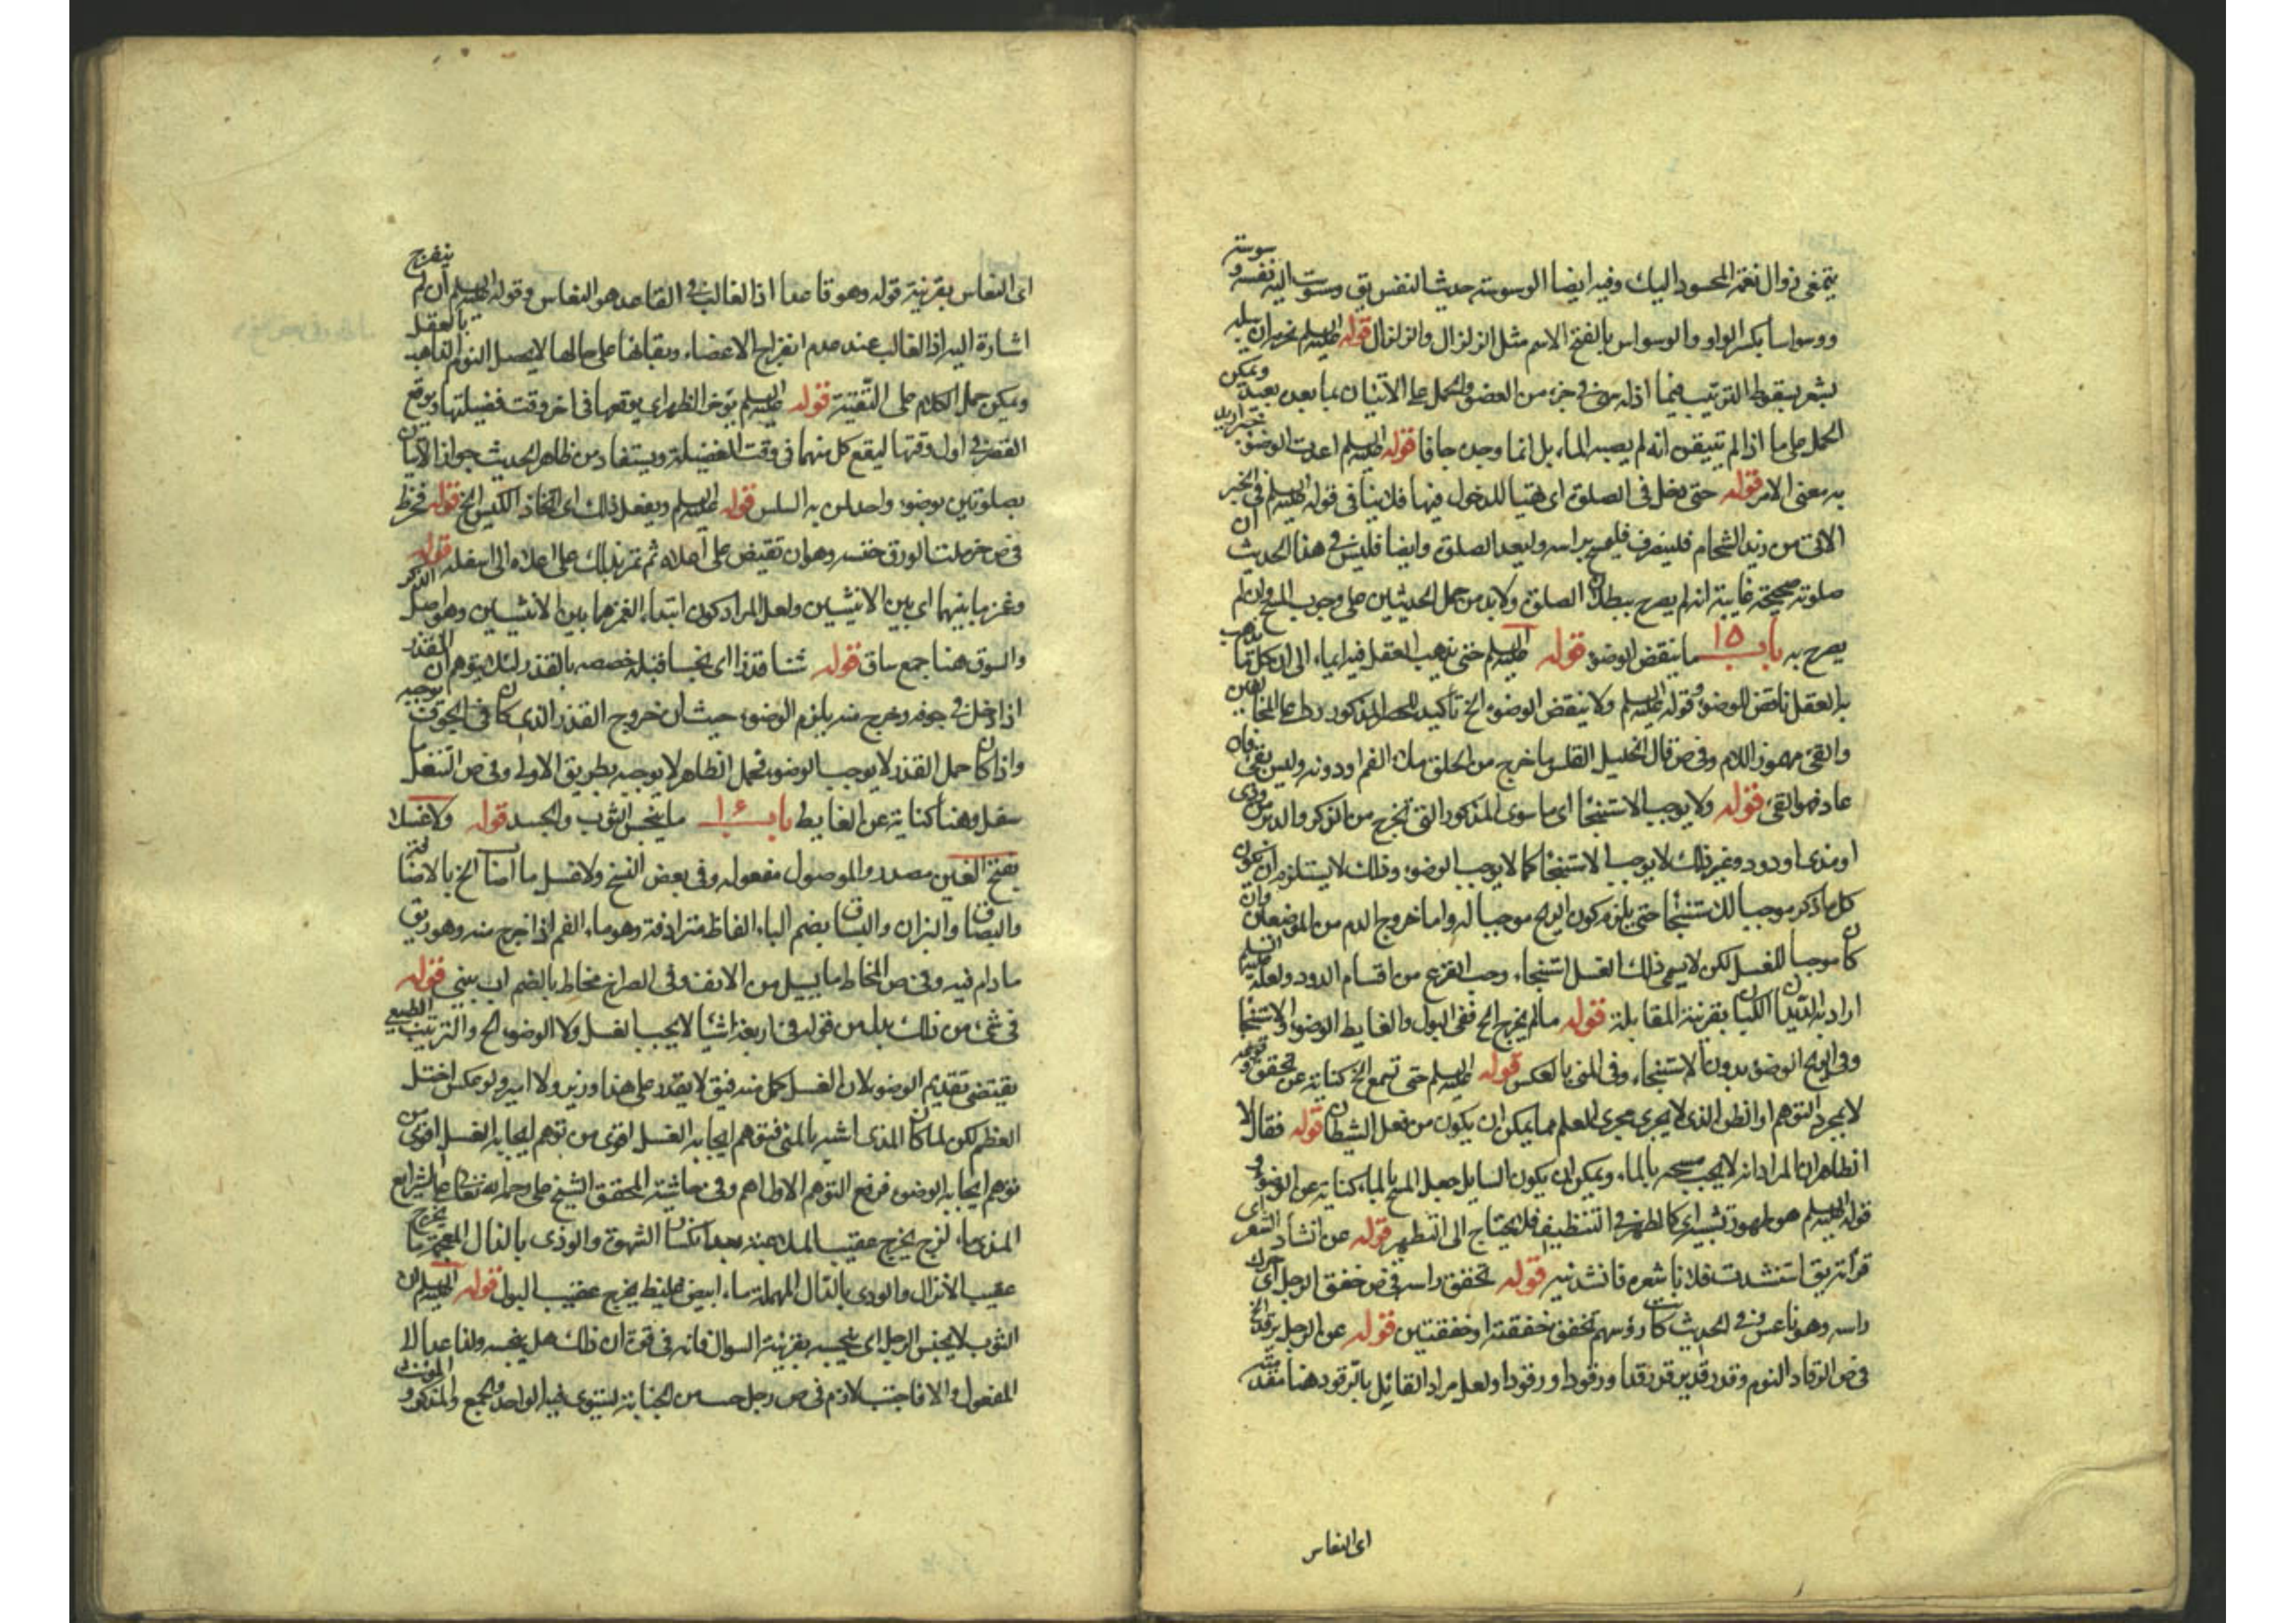 يتمنى زوال نعمة المحسود اليك وفيه ايضا الوسوسة حديث النفس يق وسوست اليه نفسه وسوسة
ووسواسا بكسر الواو والوسواس بالفتح الاسم مثل الزلزال والزلزال قوله عليه السلم
يشعر بسقوط الترتيب فيما اذا عرض في جزء من العضو والحمل على الاتيان بما بعده بعيد ويمكن
الحمل على ما اذا لم تتيقن انه لم يصبه الماء بل انما وجده جافا قوله عليه السلم اعدت الوضوء
به معنى الامر قوله حتى يدخل في الصلوة اى تهيا للدخول فيها فلا ينافى قوله عليه السلم في الخبر
الاتى من زيد الشحام فلينصرف فليمسح براسه وليعد الصلوة وايضا فليس في هذا الحديث ان
صلوته صحيحة غايته انه لم يصرح ببطلان الصلوة ولابد من حمل الحديثين على وجوب المسح وان لم
يصرح به باب ١٥ ما ينقض الوضوء قوله عليه السلم حتى يذهب العقل فيه ايماء الى ان كل ما يذهب
به العقل ناقض للوضوء وقوله عليه السلم ولا ينقض الوضوء الخ تأكيد للحصر المذكور ردا على المخالفين
والقئ مهموز اللام وفى ص قال الخليل القلس ما خرج من الحلق ملأ الفم او دونه وليس بقئ فان
عاد فهو القئ قوله ولا يوجب الاستنجا اى ما سوى المذكور التى تخرج من الذكر والدبر من ودى
او مذى او دود وغير ذلك لا يوجب الاستنجا كما لا يوجب الوضوء وذلك لا يستلزم ان يكون
كل ما ذكر موجبا للاستنجا حتى يلزم كون الريح موجبا له واما خروج الدم من الموضعين وان
كان موجبا للغسل لكن لا يسمى ذلك الغسل استنجاء وحب القرع من اقسام الدود ولعله عليه السلم
اراد به الديدان الكبار بقرينة المقابلة قوله ما لم يخرج الخ ففى البول والغايط الوضوء والاستنجا
وفى الريح الوضوء بدون الاستنجاء وفى المنى بالعكس قوله عليه السلم حتى تسمع الخ كناية عن تحقق وقوعه
لا بمجرد التوهم او الظن الذى لا يجرى مجرى العلم مما يمكن ان يكون من فعل الشيطان قوله فقال لا
الظاهر ان المراد انه لا يجب مسحه بالماء ويمكن ان يكون السايل جعل المسح بالماء كناية عن الوضوء و
قوله عليه السلم هو طهور تشبيه اى كالطهر في التنظيف فلا يحتاج الى التطهر قوله عن انشاد الشعر اى
قرأته يق استنشدت فلانا شعره فانشدنيه قوله تخفق راسه في ص خفق الرجل اى حرك
راسه وهو ناعس وفي الحديث كانت رؤسهم تخفق خفقة او خفقتين قوله عن الرجل يرقد الخ
في ص الرقاد النوم وقد رقد يرقد رقدا ورقودا ورقادا ولعل مراد القائل بالرقود هنا مقدمته
اى النعاس
اى النعاس بقرينة قوله وهو قاعد اذ الغالب في القاعد هو النعاس وقوله عليه السلم ان لم ينفرج
اشارة اليه اذ الغالب عند عدم انفراج الاعضاء وبقائها على حالها لا يحصل النوم الذاهب بالعقل
ويمكن حمل الكلام على التقية قوله عليه السلم يؤخر الظهر اى يوقعها فى اخر وقت فضيلتها ويوقع
العصر في اول وقتها ليقع كل منهما فى وقت الفضيلة ويستفاد من ظاهر الحديث جواز الاتيان
بصلوتين بوضوء واحد لمن به السلس قوله عليه السلم ويفعل ذلك اى اتخاذ الكيس الخ قوله فخرط
فى ص خرطت الورق حتته وهو ان تقبض على اعلاه ثم تمر يدك على اعلاه الى اسفله قوله
وغمز ما بينهما اى بين الانثيين ولعل المراد كون ابتداء الغمز مما بين الانثيين وهو اصل الذكر
والسوق هنا جمع ساق قوله شنا قذرا اى نجسا قبله خصصه بالقذر لئلا يتوهم ان القذر
اذا دخل في جوفه وخرج منه يلزم الوضوء حيث ان خروج القذر الذى كان فى الجوف يوجبه
واذا كان حمل القذر لا يوجب الوضوء فحمل الظاهر لا يوجبه بطريق الاولى وفى ص التنعل
سفل وهنا كناية عن الغايط باب ١٦ ما ينجس الثوب والجسد قوله ولا غسل
بفتح الغين مصدر والموصول مفعوله وفى بعض النسخ ولا غسل ما اصاب الخ بالاضافة
والبصاق والبزاق والبساق بضم الباء الفاظ مترادفة وهو ماء الفم اذا خرج منه وهو ريق
ما دام فيه وفى ص المخاط ما يسيل من الانف وفى الصراح مخاط بالضم اب بينى قوله
فى شئ من ذلك بدل من قوله فى اربعة اشيا لا يجب الغسل ولا الوضوء الخ والترتيب الطبيعى
يقتضى تقديم الوضوء لان الغسل اكمل منه فيق لا يقدر على هذا وزير ولا امير ولو عكس اختل
النظم لكن لما كان المذى اشبه بالمنى فتوهم ايجابه الغسل اقوى من توهم ايجابه الغسل اقوى من
توهم ايجابه الوضوء فرفع التوهم الاول اهم وفى حاشية المحقق الشيخ على رحمه الله تعالى على الشرايع
المذى ماء لزج يخرج عقيب الملاعبة بعد انكسار الشهوة والوذى بالذال المعجمة ما يخرج
عقيب الانزال والودى بالدال المهملة ماء ابيض غليظ يخرج عقيب البول قوله عليه السلم ان
الثوب لا يجنب الرجل اى ينجسه بقرينة السوال فانه في قوة ان ذلك هل ينجسه ولفاعدا الى
المفعول والا فاجنب لازم فى ص رجل جنب من الجنابة يستوى فيه الواحد والجمع والمذكر و المؤنث